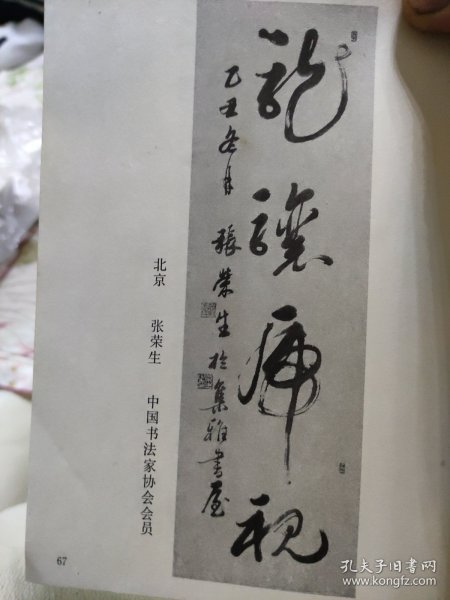 龍驤虎視
乙丑冬月 張榮生於集雅書屋
北京 张荣生 中国书法家协会会员
67
孔夫子旧书网
www.kongfz.com